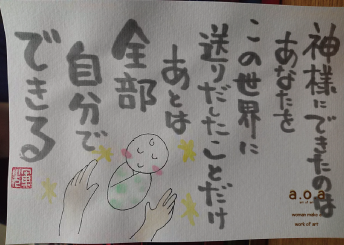 神様にできたのは
あなたを
この世界に
送りだしたことだけ
あとは
全部
自分で
できる
a.o.a
woman make a
work of art